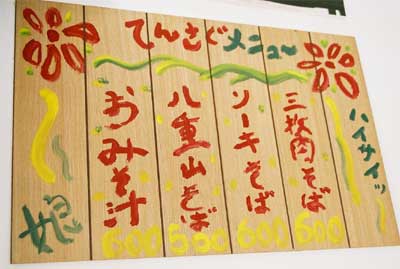 てんさぐメニュー
ハイサイッ
三枚肉そば
600
ソーキそば
600
八重山そば
500
おみそ汁
600
娘